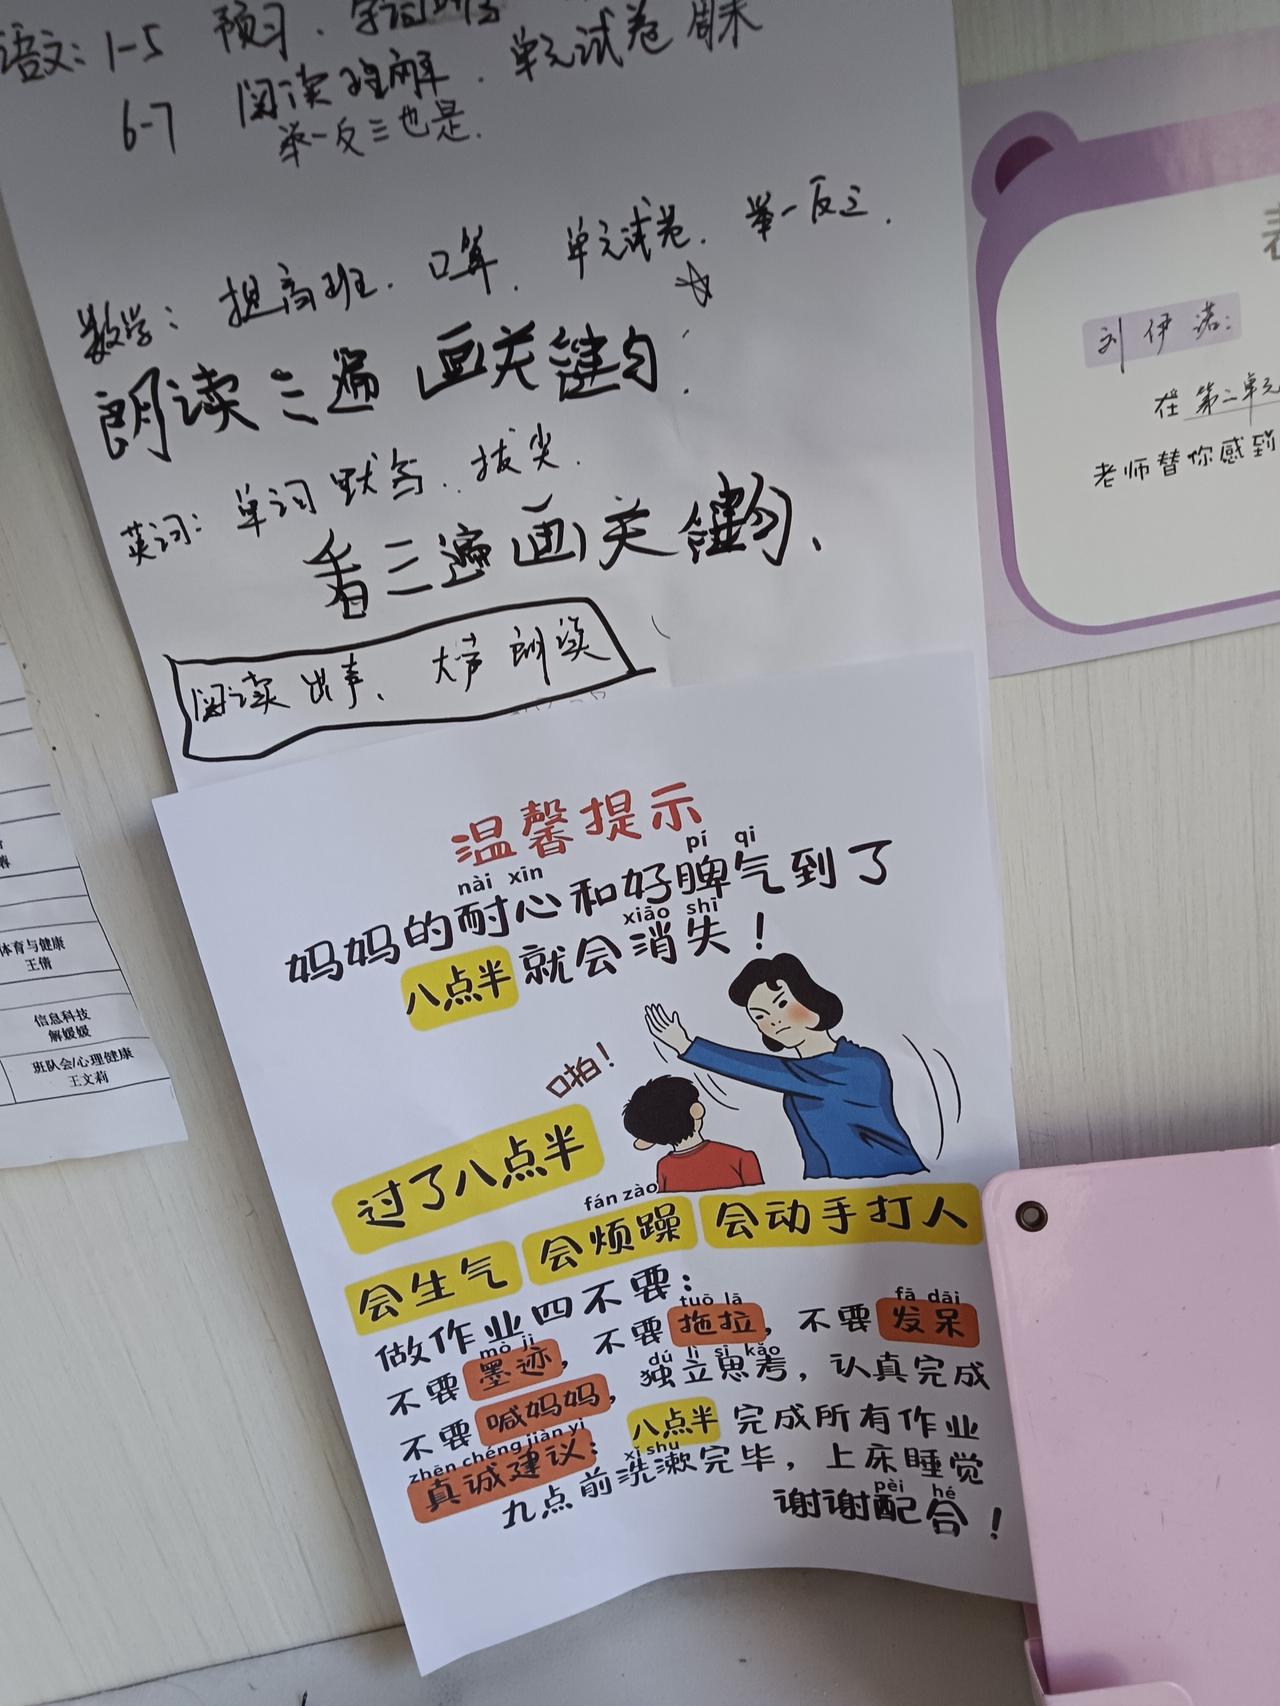 语文：1-5 预习、字词
6-7 阅读理解、单元试卷 周末
举一反三也是.
数学：提高班、口算、单元试卷、举一反三.
朗读三遍 画关键句.
英词：单词默写、拔尖.
看三遍 画关键句、
阅读 出声、大声 朗读
刘伊诺：
在 第二单元
老师替你感到
体育与健康
王倩
信息科技
解媛媛
班队会/心理健康
王文莉
温馨提示
nài xīn pí qi
妈妈的耐心和好脾气到了
xiāo shī
八点半就会消失！
啪！
过了八点半
fán zào
会生气 会烦躁 会动手打人
做作业四不要：
mò jì tuō lā fā dāi
不要墨迹，不要拖拉，不要发呆
dú lì sī kǎo
不要喊妈妈，独立思考，认真完成
zhēn chéng jiàn yì
真诚建议：八点半完成所有作业
xǐ shù
九点前洗漱完毕，上床睡觉
pèi hé
谢谢配合！